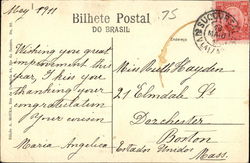 May 1911
Bilhete Postal
DO BRASIL
75
SUCCURSAL
Endereço
Wishing you great
improvement this
year, I kiss you
thanking your
congratulation
Your cousin
Maria Angelica
Miss Beth Hayden
21 Elmdale St
Dorchester
Boston
Estados Unidos Mass.